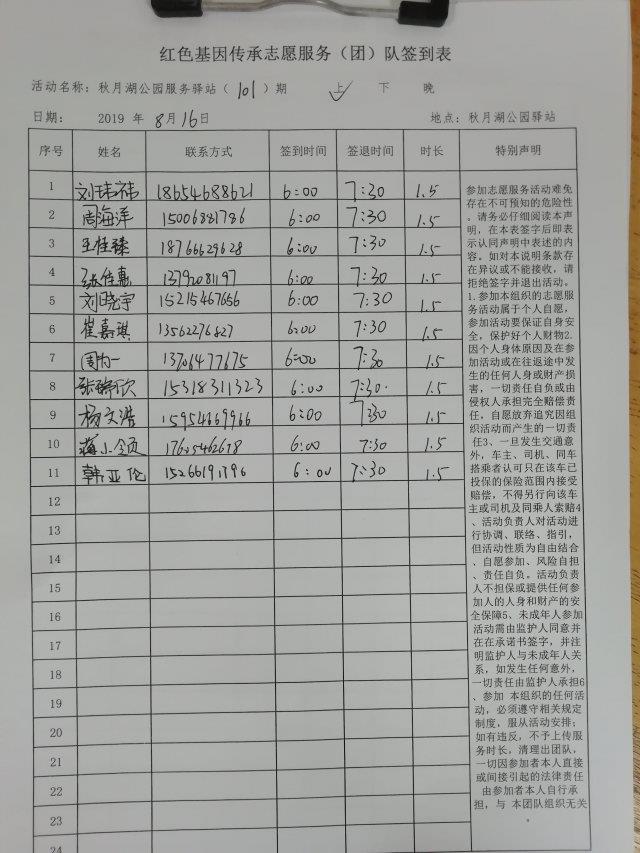 红色基因传承志愿服务（团）队签到表
活动名称：秋月湖公园服务驿站（101）期 上 ✓ 下 晚
日期： 2019 年 8月16日 地点：秋月湖公园驿站
序号 姓名 联系方式 签到时间 签退时间 时长 特别声明
1 刘玮祎 18654688621 6:00 7:30 1.5
2 周海洋 15006881786 6:00 7:30 1.5
3 王佳臻 18766629628 6:00 7:30 1.5
4 张佳惠 13792081197 6:00 7:30 1.5
5 刘晓宇 15215467656 6:00 7:30 1.5
6 崔嘉琪 13562276827 6:00 7:30 1.5
7 周一 13706477675 6:00 7:30 1.5
8 张欣 15318311323 6:00 7:30 1.5
9 杨文浩 15954669966 6:00 7:30 1.5
10 蒋小 6:00 7:30 1.5
11 韩亚伦 15266191396 6:00 7:30 1.5
12
13
14
15
16
17
18
19
20
21
22
23
24
参加志愿服务活动难免
存在不可预知的危险性
。请务必仔细阅读本声
明，在本表签字后即表
示认同声明中表述的内
容。如对本说明条款存
在异议或不能接收，请
拒绝签字并退出活动。
1.参加本组织的志愿服
务活动属于个人自愿，
参加活动要保证自身安
全，保护好个人财物2.
因个人身体原因及在参
加活动或在往返途中发
生的任何人身或财产损
害，一切责任自负或由
侵权人承担完全赔偿责
任，自愿放弃追究因组
织活动而产生的一切责
任3、一旦发生交通意
外，车主、司机、同车
搭乘者认可只在该车已
投保的保险范围内接受
赔偿，不得另行向该车
主或司机及同乘人索赔4
、活动负责人对活动进
行协调、联络、指引，
但活动性质为自由结合
、自愿参加、风险自担
、责任自负。活动负责
人不担保或提供任何参
加人的人身和财产的安
全保障5、未成年人参加
活动需由监护人同意并
在在承诺书签字，并注
明监护人与未成年人关
系，如发生任何意外，
一切责任由监护人承担6
、参加 本组织的任何活
动，必须遵守相关规定
制度，服从活动安排；
如有违反，不予上传服
务时长，清理出团队，
一切因参加者本人直接
或间接引起的法律责任
由参加者本人自行承
担，与 本团队组织无关
。